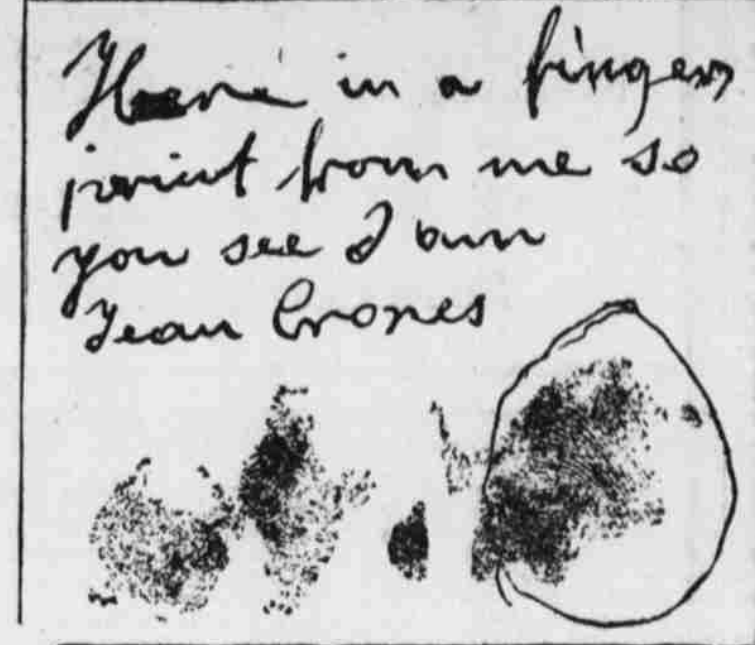 Here in a finger
print from me so
you see I am
Jean Crones